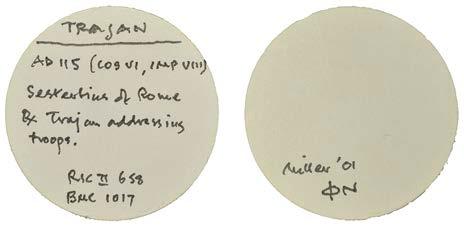 TRAJAN
AD 115 (COS VI, IMP VIII)
Sestertius of Rome
Rx Trajan addressing
troops.
RIC II 658
BMC 1017
Miller '01
ΦN